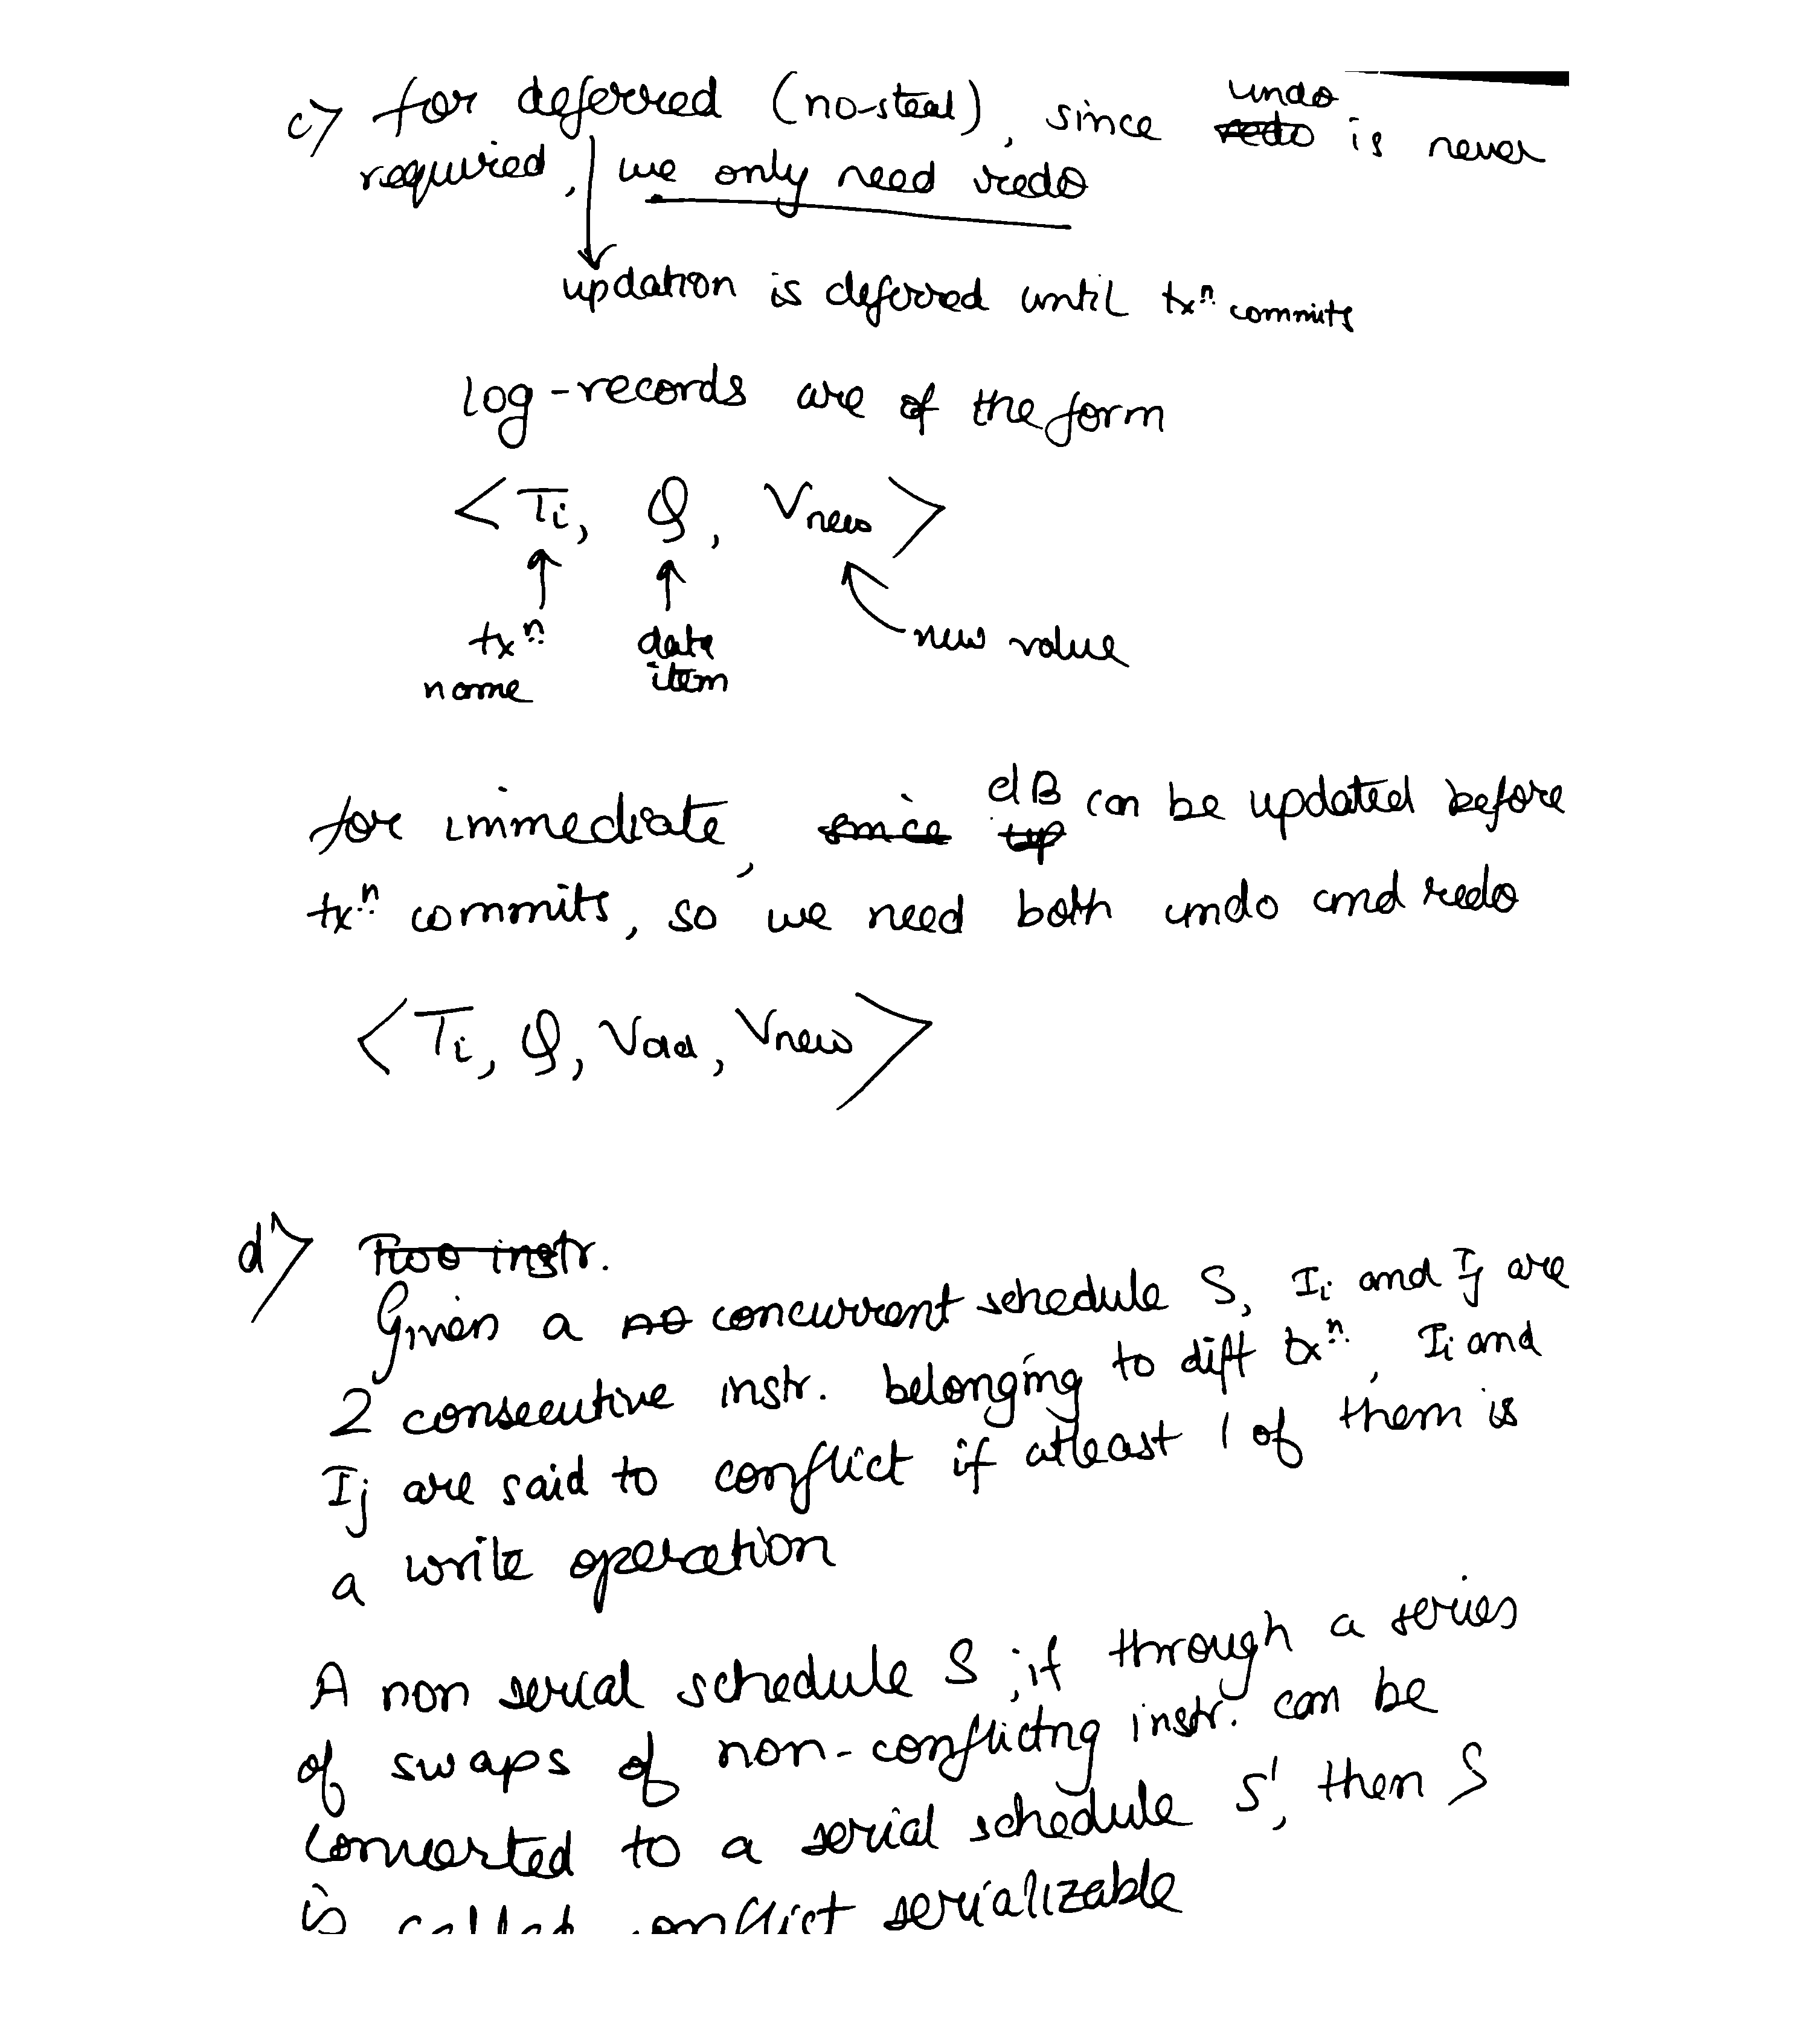 c) for deferred (no-steal), since undo is never
required, we only need redo
updation is deferred until txn commits
log-records are of the form
<Ti, Q, Vnew>
txn name
data item
new value
for immediate, since dB can be updated before
txn commits, so we need both undo and redo
<Ti, Q, Vold, Vnew>
d) Two instr.
Given a no concurrent schedule S, Ii and Ij are
2 consecutive instr. belonging to diff txn, Ii and
Ij are said to conflict if atleast 1 of them is
a write operation
A non serial schedule S, if through a series
of swaps of non-conflictng instr. can be
converted to a serial schedule S', then S
is called conflict serializable